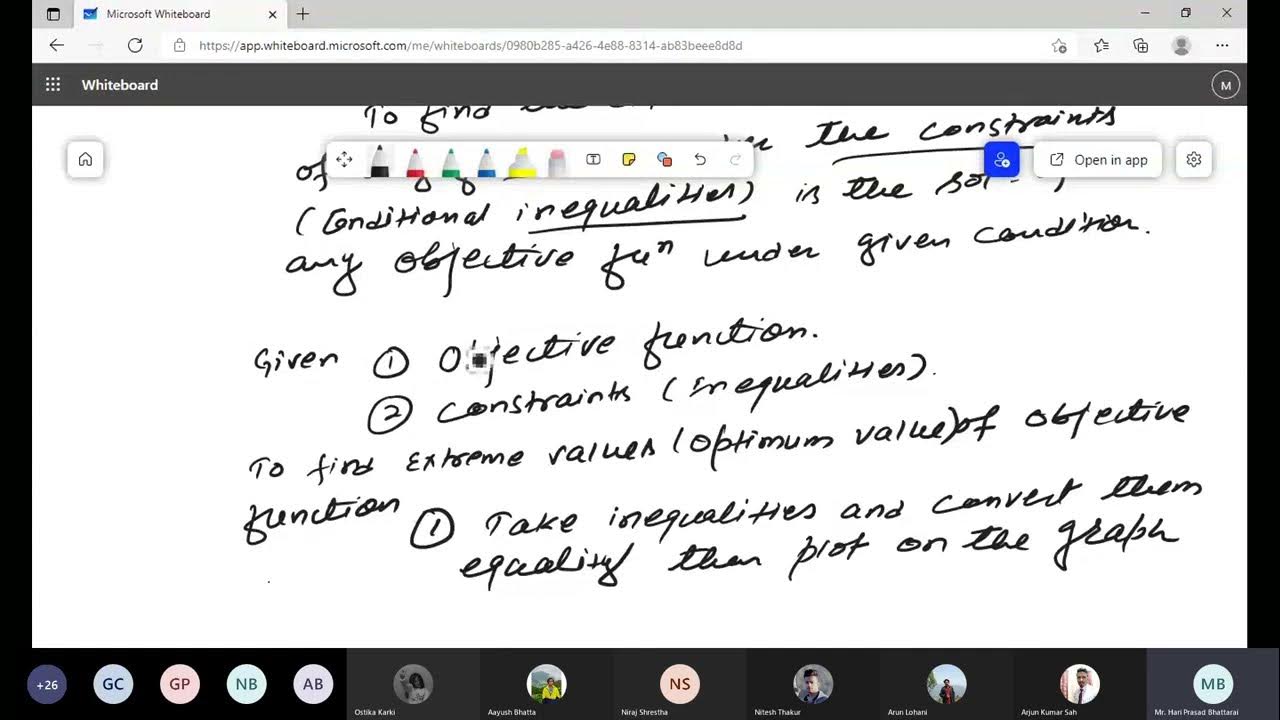 Microsoft Whiteboard
https://app.whiteboard.microsoft.com/me/whiteboards/0980b285-a426-4e88-8314-ab83beee8d8d
Whiteboard
M
To find
the constraints
of
Open in app
(Conditional inequalities) is the
any objective fuⁿ under given condition.
Given ① Objective function.
② Constraints (Inequalities).
To find Extreme values (optimum value) of objective
function ① Take inequalities and convert them
equality then plot on the graph
+26 GC GP NB AB NS MB
Ostika Karki Aayush Bhatta Niraj Shrestha Nitesh Thakur Arun Lohani Arjun Kumar Sah Mr. Hari Prasad Bhattarai